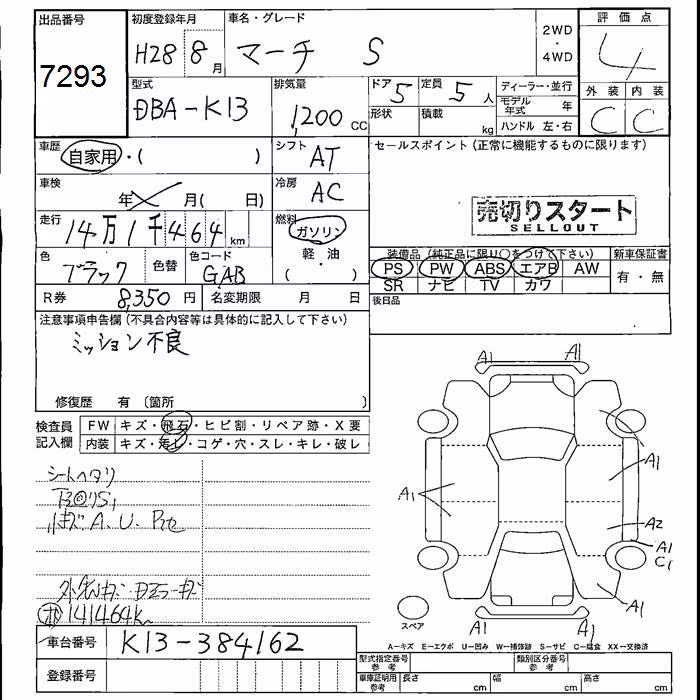 出品番号
7293
初度登録年月
H28 8月
車名・グレード
マーチ S
2WD
・
4WD
評価点
4
外装 内装
C C
型式
DBA-K13
排気量
1,200 CC
ドア 5
定員 5人
形状
積載 kg
ディーラー・並行
モデル年式 年
ハンドル 左・右
車歴
自家用・( )
シフト
AT
セールスポイント (正常に機能するものに限ります)
売切りスタート
SELLOUT
車検
年 月( 日)
冷房
AC
走行
14万1千464km
燃料
ガソリン
・
軽・油
( )
色
ブラック
色替
色コード
GAB
装備品(純正品に限り○をつけて下さい)
PS PW ABS エアB AW
SR ナビ TV カワ
新車保証書
有・無
後日品
R券 8,350円
名変期限 月 日
注意事項申告欄(不具合内容等は具体的に記入して下さい)
ミッション不良
修復歴 有 〔箇所 〕
検査員
記入欄
FW キズ・飛石・ヒビ割・リペア跡・X要
内装 キズ・汚レ・コゲ・穴・スレ・キレ・破レ
シートヘタリ
A.U.
141464k
車台番号
K13-384162
登録番号
A1
A1
A1
A1
A2
A1
C1
A1
A1
A1
スペア
A-キズ E-エクボ U-凹み W-補修跡 S-サビ C-腐食 XX-交換済
型式指定番号
参考
類別区分番号
参考
車庫証明用
参考
長さ cm
幅 cm
高さ cm